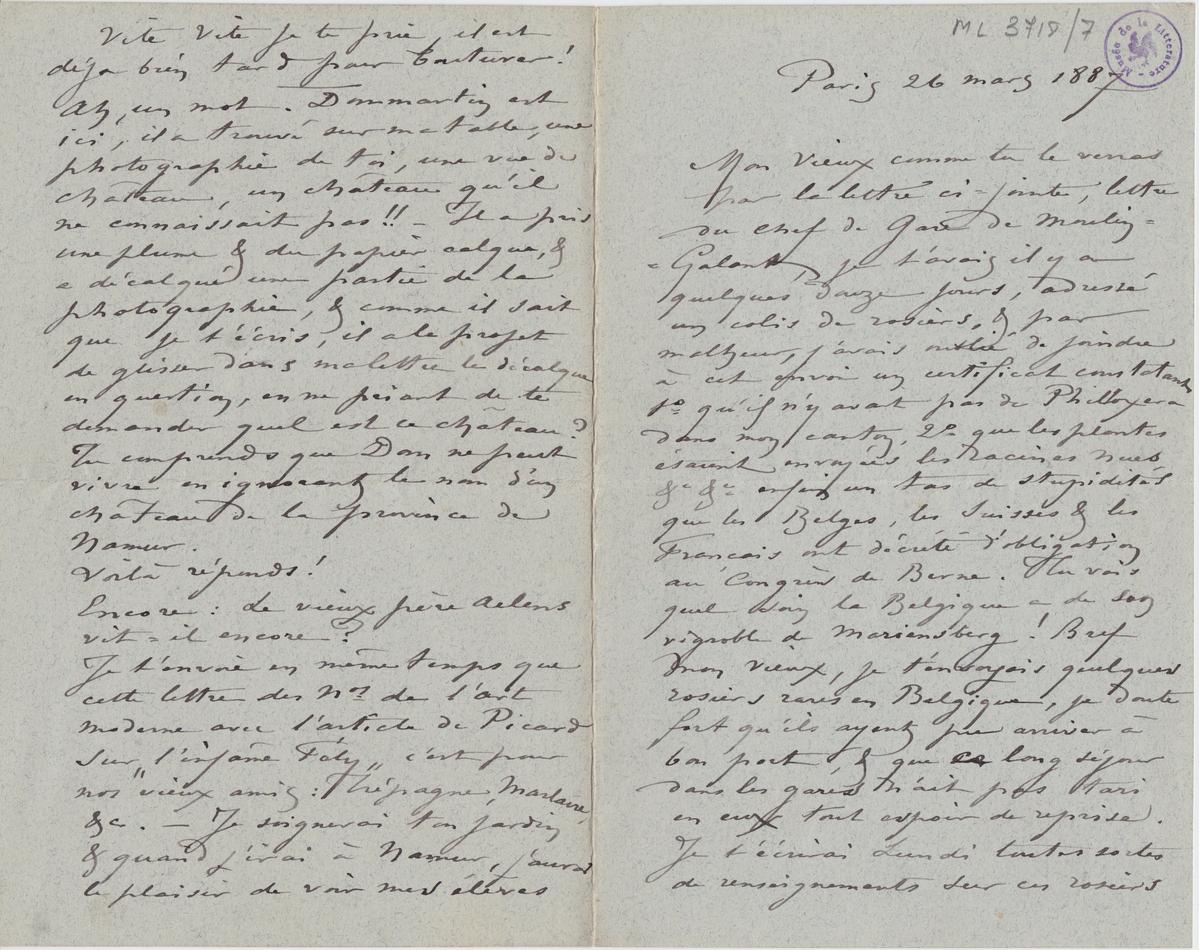 ML 3718/7
Musée de la Littérature
Paris 26 mars 1887
Mon vieux comme tu le verras
par la lettre ci-jointe, lettre
du chef de Gare de Moulin-
-Galant, je t'avais il y a
quelques douze jours, adressé
un colis de rosiers, & par
malheur, j'avais oublié de joindre
à cet envoi un certificat constatant
1º qu'il n'y avait pas de Philloxera
dans mon canton, 2º que les plantes
étaient envoyées les racines nues
&ª &ª enfin un tas de stupidités
que les Belges, les Suisses & les
Français ont décrété d'obligation
au Congrès de Berne. Tu vois
quel soin la Belgique a de son
vignoble de Mariensberg ! Bref
mon vieux, je t'envoyais quelques
rosiers rares en Belgique, je doute
fort qu'ils ayent pu arriver à
bon port, & que ce long séjour
dans les gares n'ait pas tari
en eux tout espoir de reprise.
Je t'écrirai Lundi toutes sortes
de renseignements sur ces rosiers
Vite Vite je te prie, il est
déja bien tard pour bouturer !
Ah, un mot. Dommartin est
ici, il a trouvé sur ma table, une
photographie de toi, une vue de
château, un château qu'il
ne connaissait pas !! – Il a pris
une plume & du papier calque, &
a décalqué une partie de la
photographie, & comme il sait
que je t'écris, il a le projet
de glisser dans ma lettre le décalque
en question, en me priant de te
demander quel est ce château ?
Tu comprends que Dom ne peut
vivre en ignorant le nom d'un
château de la province de
Namur.
Voilà réponds !
Encore : Le vieux père Aelens
vit-il encore ?
Je t'envoie en même temps que
cette lettre des Nos de l'art
moderne avec l'article de Picard
sur "l'infâme Fély" c'est pour
nos vieux amis : Trépagne,
&a. — Je soignerai ton jardin
& quand j'irai à Namur, j'aurai
le plaisir de voir mes élèves